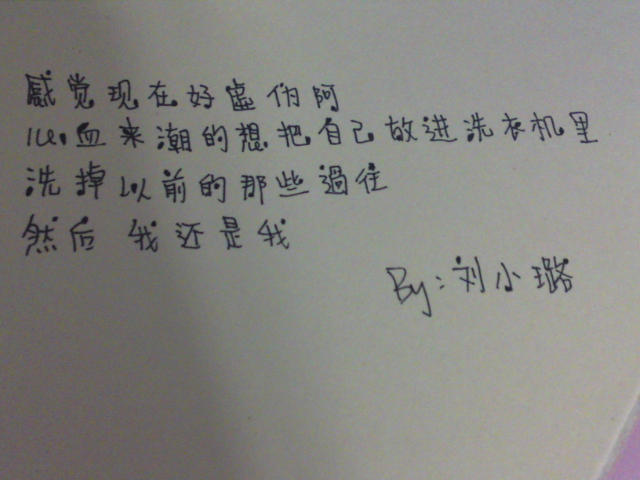 感觉现在好虚伪阿
心血来潮的想把自己放进洗衣机里
洗掉以前的那些過往
然后 我还是我
By:刘小璐